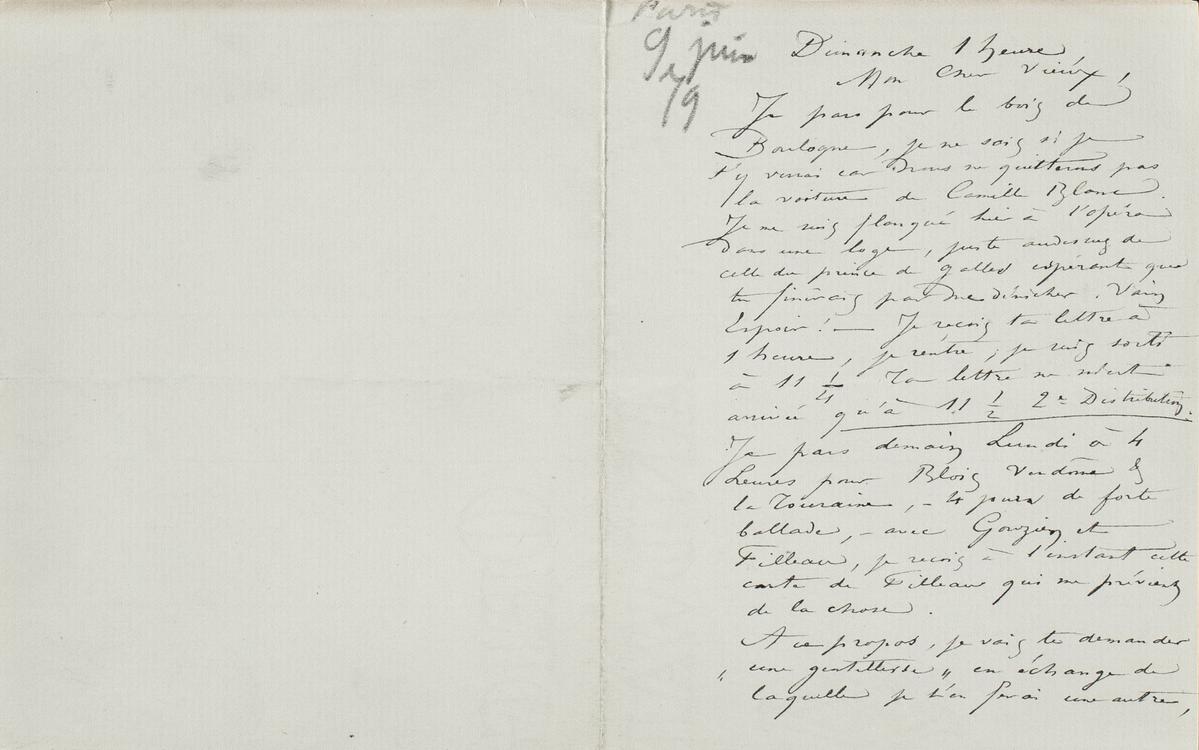 Paris
9 juin
79
Dimanche 1 heure,
Mon cher vieux,
Je pars pour le bois de
Boulogne, je ne sais si je
t'y verrai car nous ne quitterons pas
la voiture de Camille Blanc.
Je me suis planqué hier à l'opéra
dans une loge, juste audessus de
celle du prince de galles espérant que
tu finirais par me dénicher. Vain
Espoir! — Je reçois ta lettre à
1 heure, je rentre, je suis sorti
à 11 1/4 Ta lettre ne m'est
arrivée qu'à 11 1/2 2e Distribution.
Je pars demain Lundi à 4
heures pour Blois Vendôme &
la Touraine, - 4 jours de forte
ballade, - avec Gouzien et
Filleau, je reçois à l'instant cette
carte de Filleau qui me prévient
de la chose.
A ce propos, je vais te demander
"une gentillesse" en échange de
laquelle je t'en ferai une autre,